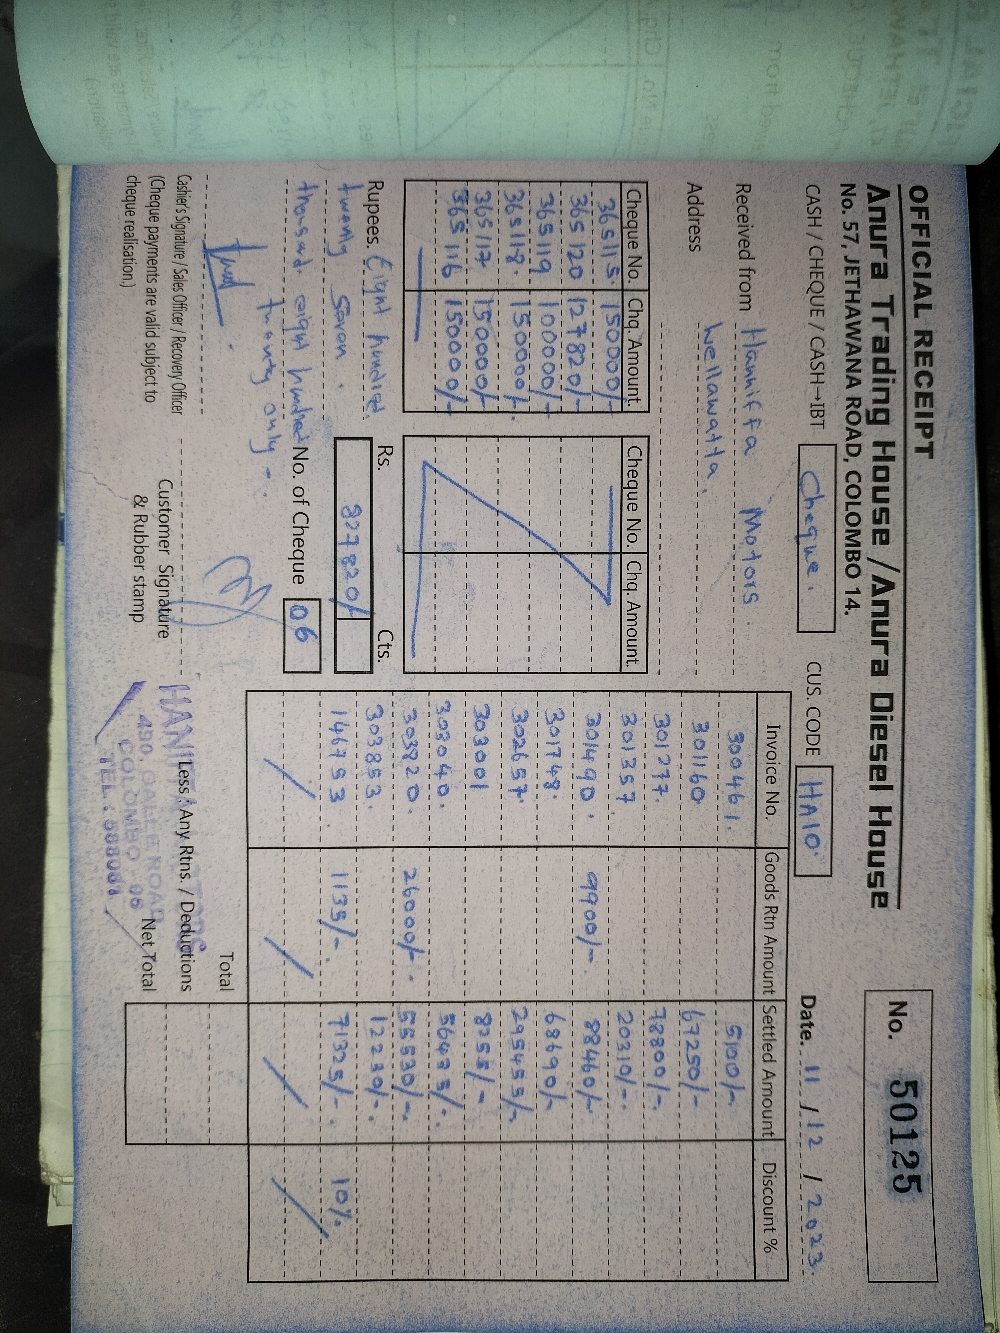 OFFICIAL RECEIPT
No. 50125
Anura Trading House / Anura Diesel House
No. 57, JETHAWANA ROAD, COLOMBO 14.
CASH / CHEQUE / CASH→IBT Cheque. CUS. CODE HA10. Date. 11 / 12 / 2023.
Received from Hanniffa Motors
Address Wellawatta.
Cheque No. Chq. Amount. Cheque No. Chq. Amount.
365115. 150000/-
365120 127820/-
365119 100000/-
365118. 150000/-
365117 150000/-
365116 150000/-
Rupees. Eight hundred
twenty seven
thousand eight hundred
twenty only -
Rs. Cts.
827820/-
No. of Cheque 06
Invoice No. Goods Rtn Amount Settled Amount Discount %
300461. 5100/-
301160 67250/-
301277. 78800/-
301357 20310/-
301490. 9900/- 88460/-
301748. 68690/-
302657. 295455/-
303001 8255/-
303040. 56435/-
303920. 26000/- 55530/-
303853. 12230/-
146753 1135/- 71325/- 10%
Total
Less : Any Rtns. / Deductions
Net Total
Cashier's Signature / Sales Officer / Recovery Officer
(Cheque payments are valid subject to
cheque realisation.)
Customer Signature
& Rubber stamp
490, GALLE ROAD
COLOMBO - 06
TEL : 588081